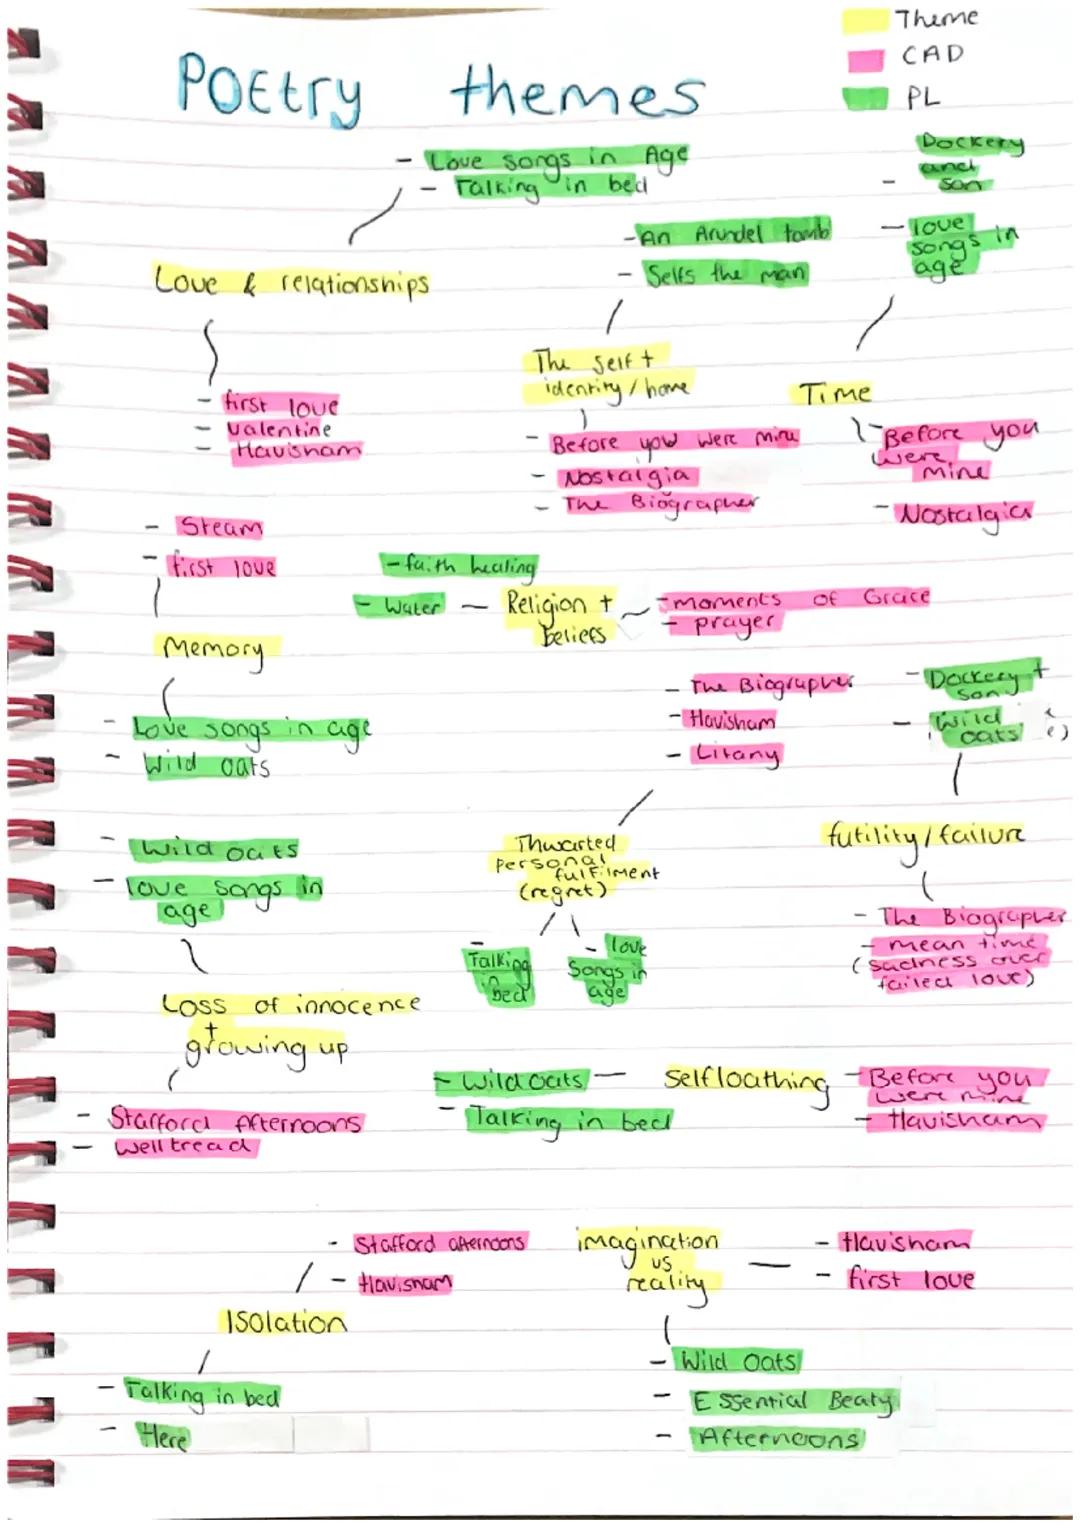 Theme
CAD
PL
POEtry themes
- Love songs in Age
- Talking in bed
Dockery
and
- son
- love
songs in
age
- An Arundel tomb
- Selfs the man
Love & relationships
The self +
identity / home
Time
- first love
- valentine
- Havisham
- Before you were mine
- Nostalgia
- The Biographer
- Before you
were
mine
- Nostalgia
- Steam
- first love
- faith healing
- Water
Religion +
beliefs
- moments of Grace
- prayer
Memory
- Love songs in age
- Wild oats
- The Biographer
- Havisham
- Litany
- Dockery +
son
- Wild
oats
- Wild oats
- love songs in
age
Thwarted
personal
fulfilment
(regret)
futility / failure
- Talking
in
bed
- love
songs in
age
- The Biographer
- mean time
(sadness over
failed love)
Loss of innocence
+
growing up
- Wild oats
- Talking in bed
Self loathing
- Before you
were mine
- Havisham
- Stafford Afternoons
- well tread
- Stafford afternoons
- Havisham
imagination
vs
reality
- Havisham
- first love
Isolation
- Talking in bed
- Here
- Wild Oats
- Essential Beaty
- Afternoons